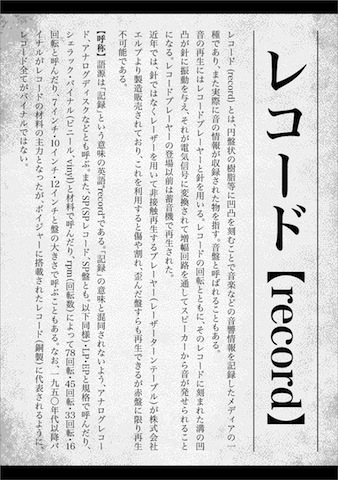 レコード【record】
レコード (record) とは、円盤状の樹脂等に凹凸を刻むことで音楽などの音響情報を記録したメディアの一
種であり、また実際に音の情報が収録された物を指す。音盤と呼ばれることもある。
音の再生にはレコードプレーヤーと針を用いる。レコードの回転とともに、そのレコードに刻まれた溝の凹
凸が針に振動を与え、それが電気信号に変換されて増幅回路を通してスピーカーから音が発せられること
になる。レコードプレーヤーの登場以前は蓄音機で再生された。
近年では、針ではなくレーザーを用いて非接触再生するプレーヤー(レーザーターンテーブル)が株式会社
エルプより製造販売されており、これを利用すると傷や割れ、歪んだ盤すらも再生できるが赤盤に限り再生
不可能である。
【呼称】語源は「記録」という意味の英語"record"である。「記録」の意味と混同されないよう、アナログレコー
ド、アナログディスクなどとも呼ぶ。また、SP(SPレコード、SP盤とも。以下同様)・LP・EPと規格で呼んだり、
シェラック・バイナル(ビニール、vinyl)と材料で呼んだり、rpm(回転数)によって78回転・45回転・33回転・16
回転と呼んだり、7インチ・10インチ・12インチと盤の大きさで呼ぶこともある。なお、一九五〇年代以降バ
イナルがレコードの材料の主力となったが、ボイジャーに搭載されたレコード(銅製)に代表されるように、
レコード全てがバイナルではない。